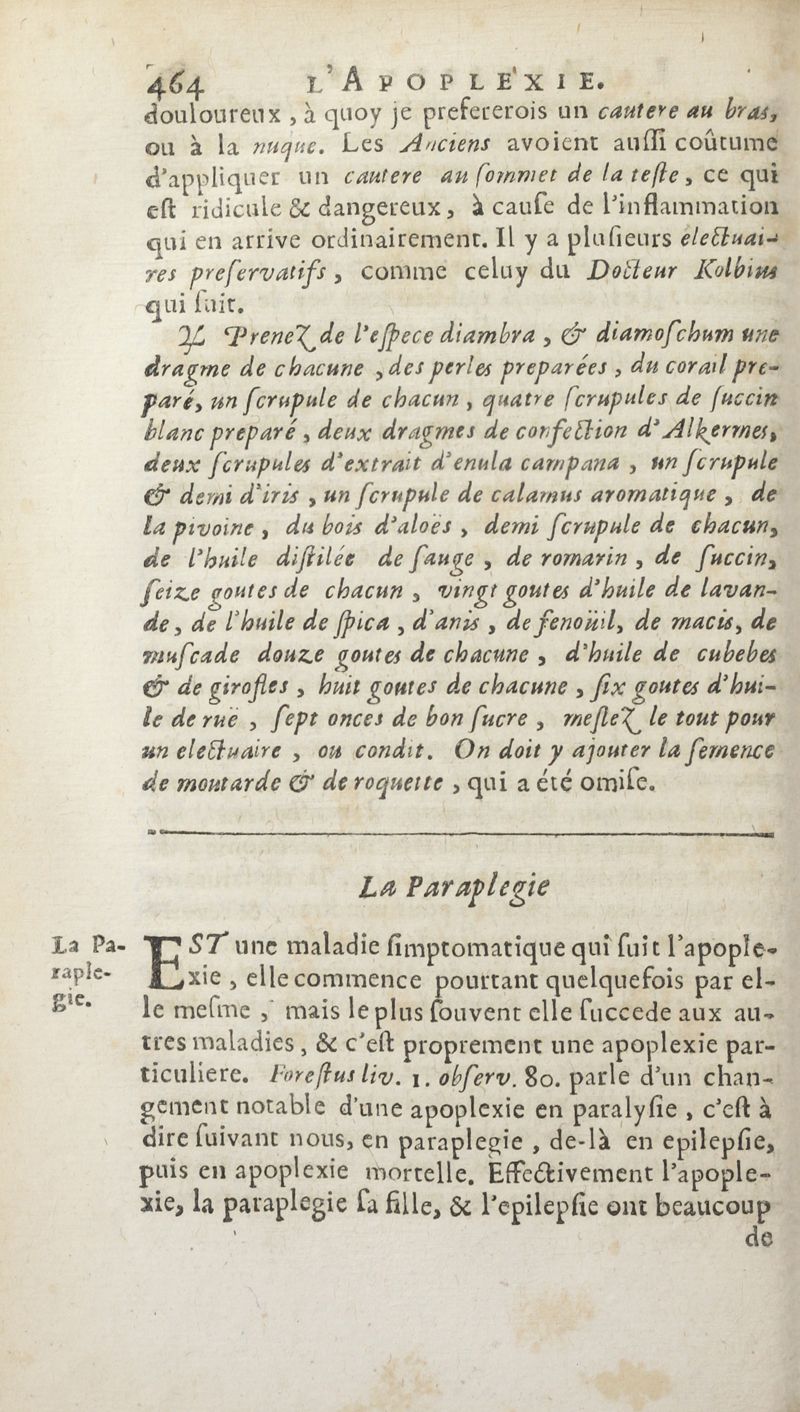 464 L'APOPLE'XIE.
douloureux , à quoy je prefererois un cautere au bras,
ou à la nuque. Les Anciens avoient auſſi coûtume
d'appliquer un cautere au ſommet de la teſte, ce qui
eſt ridicule & dangereux, à cauſe de l'inflammation
qui en arrive ordinairement. Il y a pluſieurs electuai-
res preſervatifs, comme celuy du Docteur Kolbius
qui ſuit.
℞ Prenez de l'eſpece diambra , & diamoſchum une
dragme de chacune , des perles preparées , du corail pre-
paré, un ſcrupule de chacun , quatre ſcrupules de ſuccin
blanc preparé , deux dragmes de confection d'Alkermes,
deux ſcrupules d'extrait d'enula campana , un ſcrupule
& demi d'iris , un ſcrupule de calamus aromatique , de
la pivoine , du bois d'aloës , demi ſcrupule de chacun,
de l'huile diſtilée de ſauge , de romarin , de ſuccin,
ſeize goutes de chacun , vingt goutes d'huile de lavan-
de, de l'huile de ſpica , d'anis , de fenoüil, de macis, de
muſcade douze goutes de chacune , d'huile de cubebes
& de girofles , huit goutes de chacune , ſix goutes d'hui-
le de ruë , ſept onces de bon ſucre , meſlez le tout pour
un electuaire , ou condit. On doit y ajouter la ſemence
de moutarde & de roquette , qui a été omiſe.
La Paraplegie
La Pa-
raple-
gie.
EST une maladie ſimptomatique qui ſuit l'apople-
xie , elle commence pourtant quelquefois par el-
le meſme , mais le plus ſouvent elle ſuccede aux au-
tres maladies, & c'eſt proprement une apoplexie par-
ticuliere. Foreſtus liv. 1. obſerv. 80. parle d'un chan-
gement notable d'une apoplexie en paralyſie , c'eſt à
dire ſuivant nous, en paraplegie , de-là en epilepſie,
puis en apoplexie mortelle. Effectivement l'apople-
xie, la paraplegie ſa fille, & l'epilepſie ont beaucoup
de